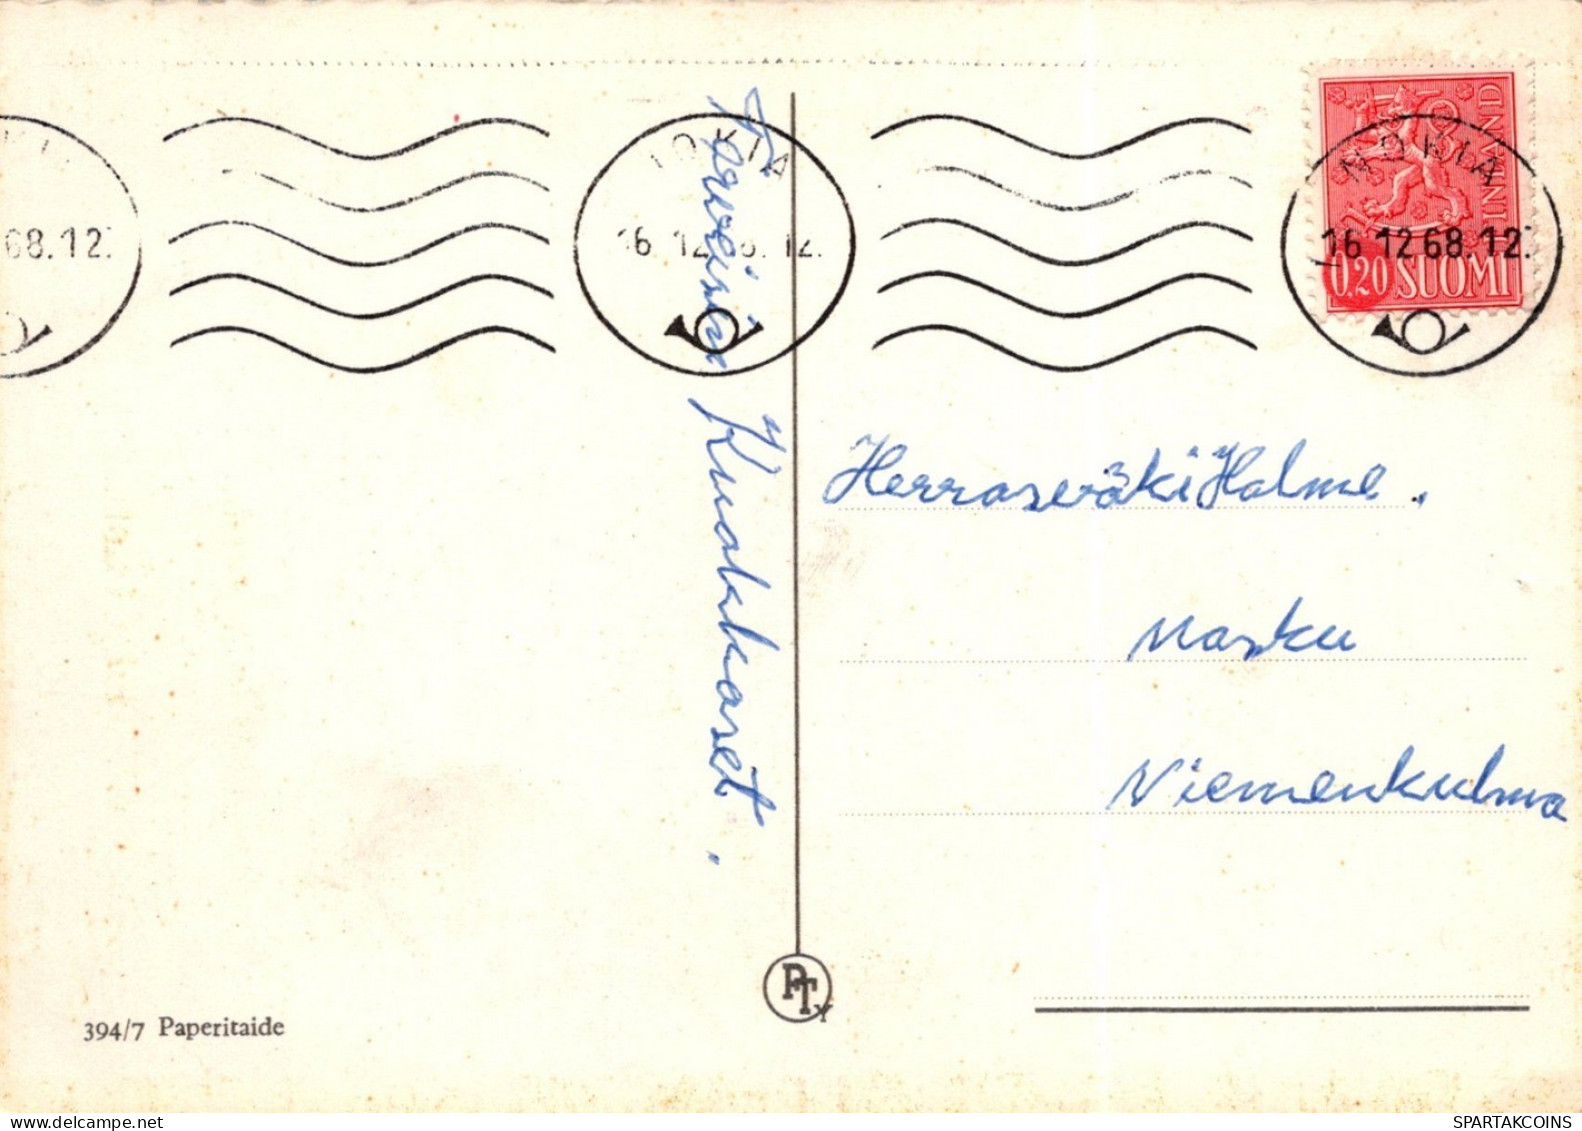 NOKIA
16.12.68.12.
SUOMI
FINLAND
0,20
68.12.
OKIA
16.12.68.12.
Terveisin Kuokkaset.
Herrasväki Halme.
Masku
Niemenkulma
PTY
394/7 Paperitaide
SPARTAKCOINS